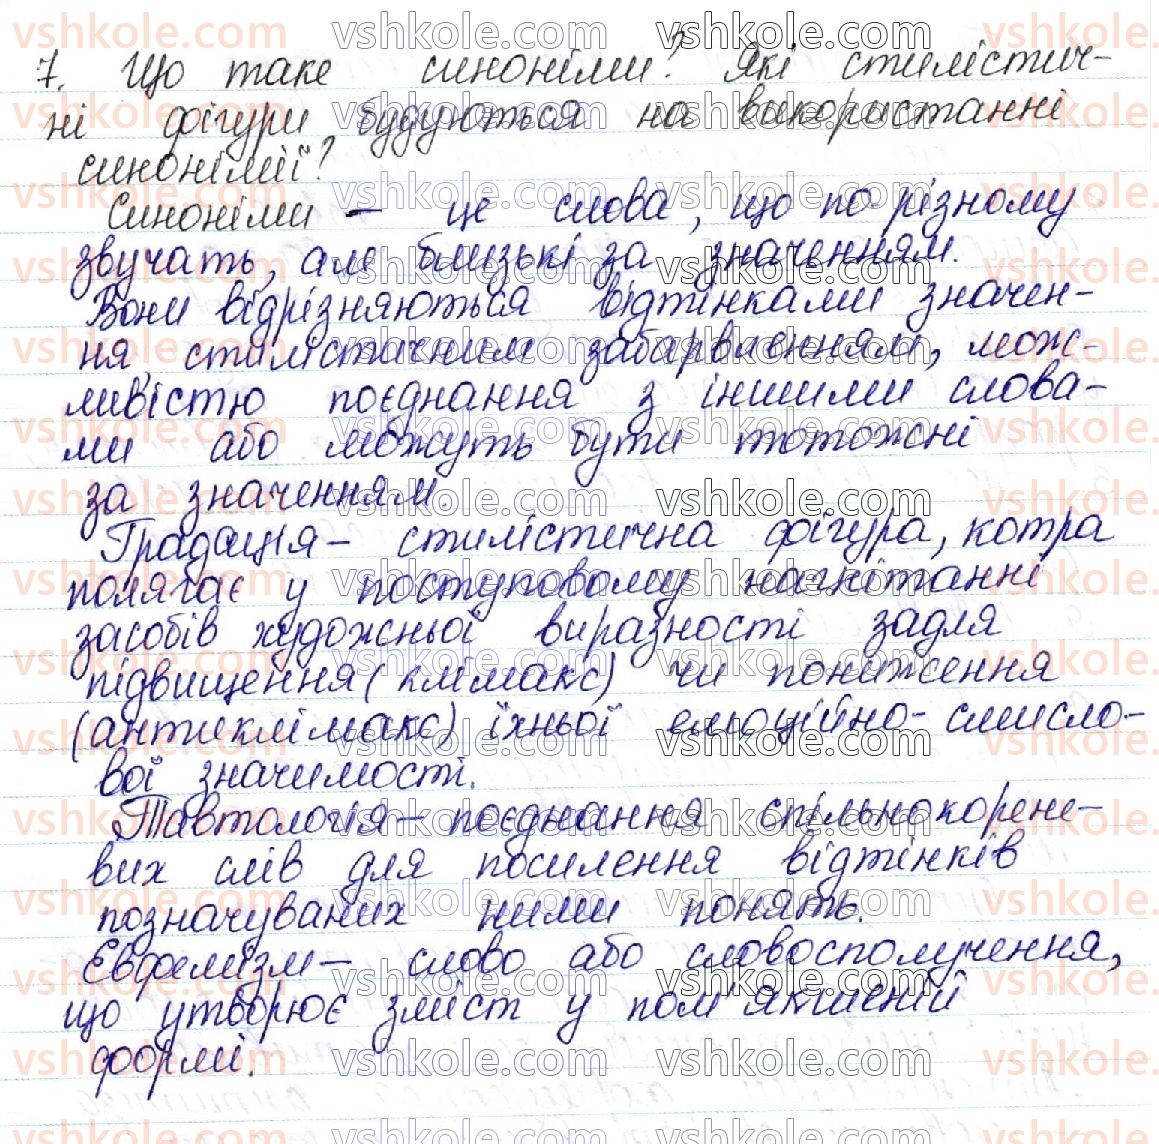 7. Що таке синоніми? Які стилістич-
ні фігури будуються на використанні
синонімії?
Синоніми – це слова, що по-різному
звучать, але близькі за значенням.
Вони відрізняються відтінками значен-
ня, стилістичним забарвленням, мож-
ливістю поєднання з іншими слова-
ми або можуть бути тотожні
за значенням.
Градація – стилістична фігура, котра
полягає у поступовому нагнітанні
засобів художньої виразності задля
підвищення (клімакс) чи пониження
(антиклімакс) їхньої емоційно-смисло-
вої значимості.
Тавтологія – поєднання спільнокорене-
вих слів для посилення відтінків
позначуваних ними понять.
Евфемізм – слово або словосполучення,
що утворює зміст у пом'якшеній
формі.
vshkole.com